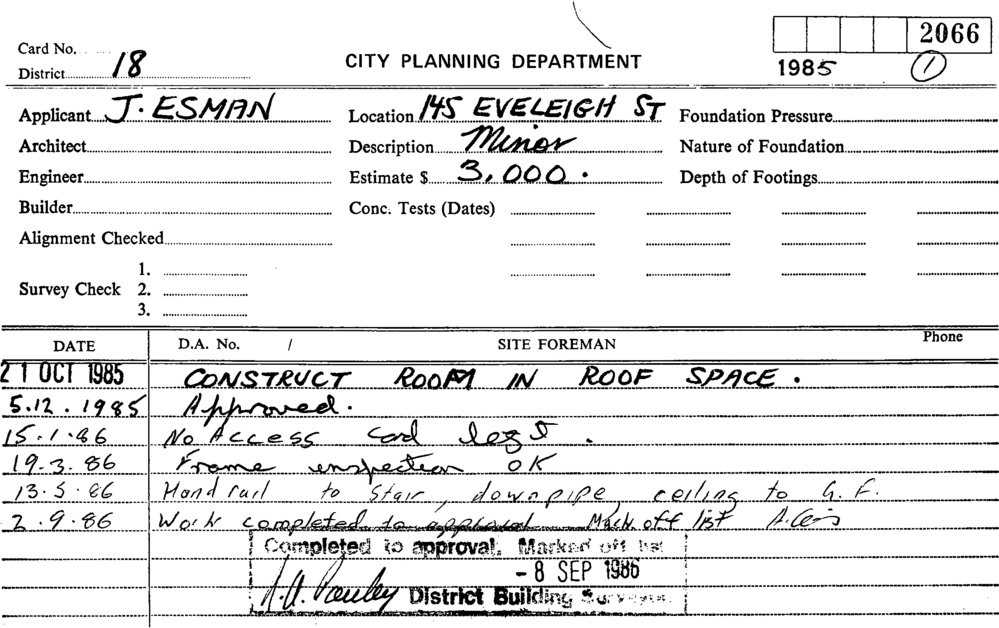 2066
Card No.
District 18
CITY PLANNING DEPARTMENT
1985 1
Applicant J. ESMAN
Location 145 EVELEIGH ST
Foundation Pressure
Architect
Description Minor
Nature of Foundation
Engineer
Estimate $ 3,000.
Depth of Footings
Builder
Conc. Tests (Dates)
Alignment Checked
Survey Check 1. 2. 3.
DATE D.A. No. / SITE FOREMAN Phone
21 OCT 1985 CONSTRUCT ROOM IN ROOF SPACE.
5.12.1985 Approved.
15.1.86 No Access card left.
19.3.86 Frame inspection OK
13.5.86 Hand rail to stair, downpipe, ceiling to G.F.
2.9.86 Work completed to approval Mark off list
Completed to approval. Marked off list
- 8 SEP 1986
District Building Surveyor